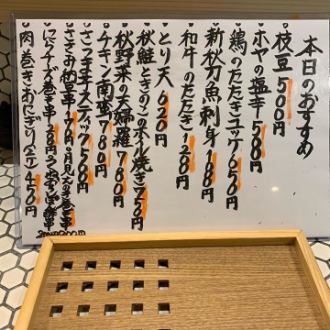 本日のおすすめ
枝豆 500円
ホヤの塩辛 580円
鶏のたたきユッケ 650円
新秋刀魚刺身 1,180円
和牛のたたき 1,200円
とり天 620円
秋鮭ときのこのホイル焼き 750円
秋野菜の天婦羅 780円
チキン南蛮 780円
さつま芋スティック 550円
肉巻きおにぎり 450円